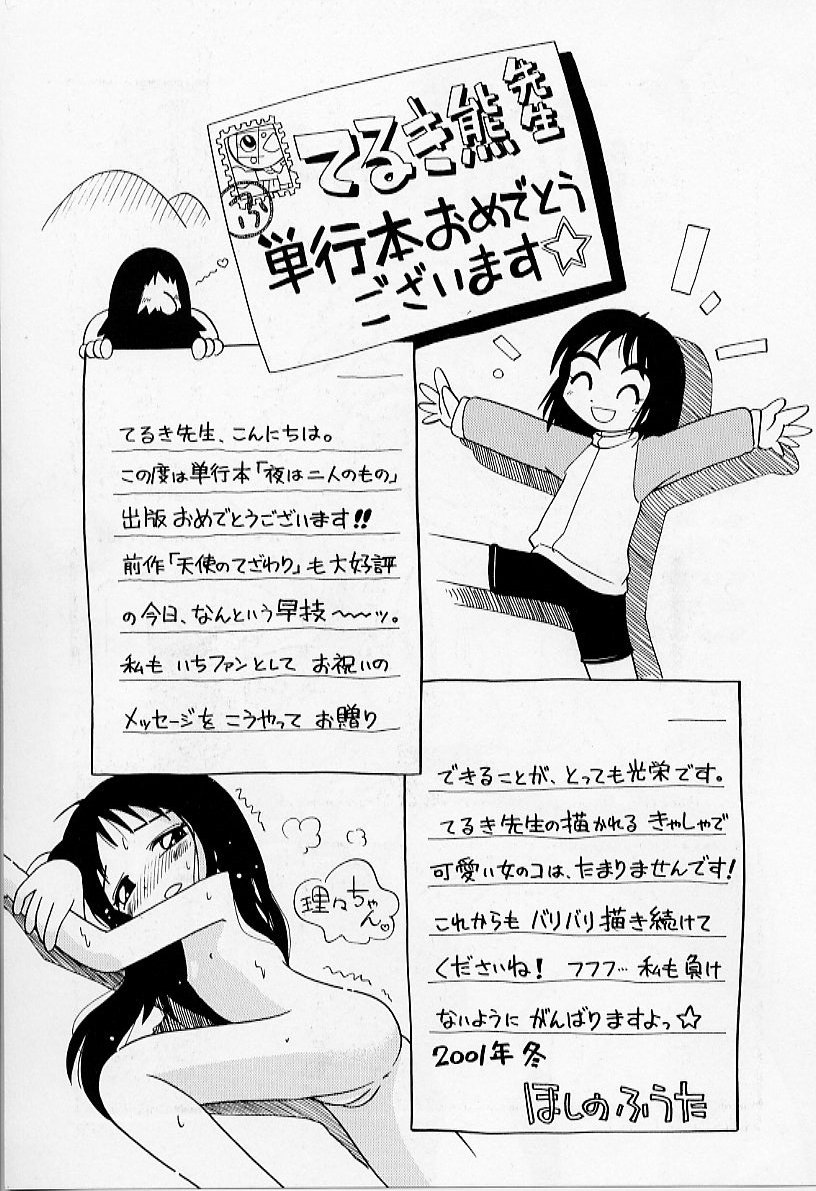 てるき熊先生
単行本おめでとう
ございます☆
ふ
てるき先生、こんにちは。
この度は単行本「夜は二人のもの」
出版おめでとうございます!!
前作「天使のてざわり」も大好評
の今日、なんという早技〜〜ッ。
私も いちファンとして お祝いの
メッセージを こうやって お贈り
できることが、とっても光栄です。
てるき先生の描かれる きゃしゃで
可愛い女のコは、たまりませんです!
これからも バリバリ描き続けて
くださいね! フフフ… 私も負け
ないように がんばりますよっ☆
2001年 冬
ほしのふうた
理々ちゃん♡